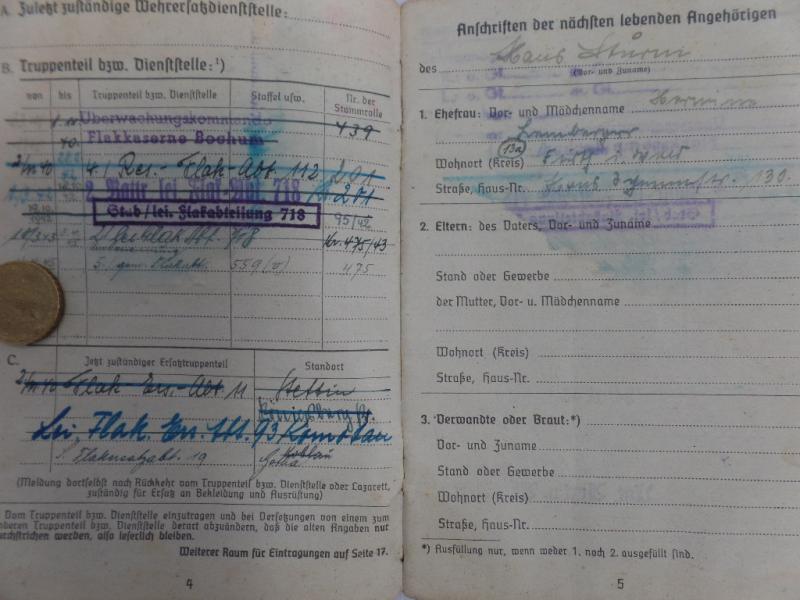 A. Zuletzt zuständige Wehrersatzdienststelle:
B. Truppenteil bzw. Dienststelle:¹)
von bis Truppenteil bzw. Dienststelle Staffel usw. Nr. der Stammrolle
Überwachungskommando 439
Flakkaserne Bochum
4./ Res.- Flak-Abt 112 201
2. Battr. lei. Flak-Abt 718 201
Stab/lei. Flakabteilung 718 95/42
718 Nr. 475/43
559 (v) 475
C. Jetzt zuständiger Ersatztruppenteil Standort
Flak Ers.-Abt 11 Stettin
Königsberg Pr.
Lei. Flak. Ers. Abt. 93 Komotau
Flakersatzabt. 19 Gotha
(Meldung dortselbst nach Rückkehr vom Truppenteil bzw. Dienststelle oder Lazarett,
zuständig für Ersatz an Bekleidung und Ausrüstung)
Vom Truppenteil bzw. Dienststelle einzutragen und bei Versetzungen von einem zum
anderen Truppenteil bzw. Dienststelle derart abzuändern, daß die alten Angaben nur
durchstrichen werden, also leserlich bleiben.
Weiterer Raum für Eintragungen auf Seite 17.
4
Anschriften der nächsten lebenden Angehörigen
des Hans Sturm
(Vor- und Zuname)
1. Ehefrau: Vor- und Mädchenname Hermine
Lemberger
Wohnort (Kreis) (13a) Fürth i. Wald
Straße, Haus-Nr. 130.
Stab/lei. Flakabteilung 718
2. Eltern: des Vaters, Vor- und Zuname
Stand oder Gewerbe
der Mutter, Vor- u. Mädchenname
Wohnort (Kreis)
Straße, Haus-Nr.
3. Verwandte oder Braut:*)
Vor- und Zuname
Stand oder Gewerbe
Wohnort (Kreis)
Straße, Haus-Nr.
*) Ausfüllung nur, wenn weder 1. noch 2. ausgefüllt sind.
5